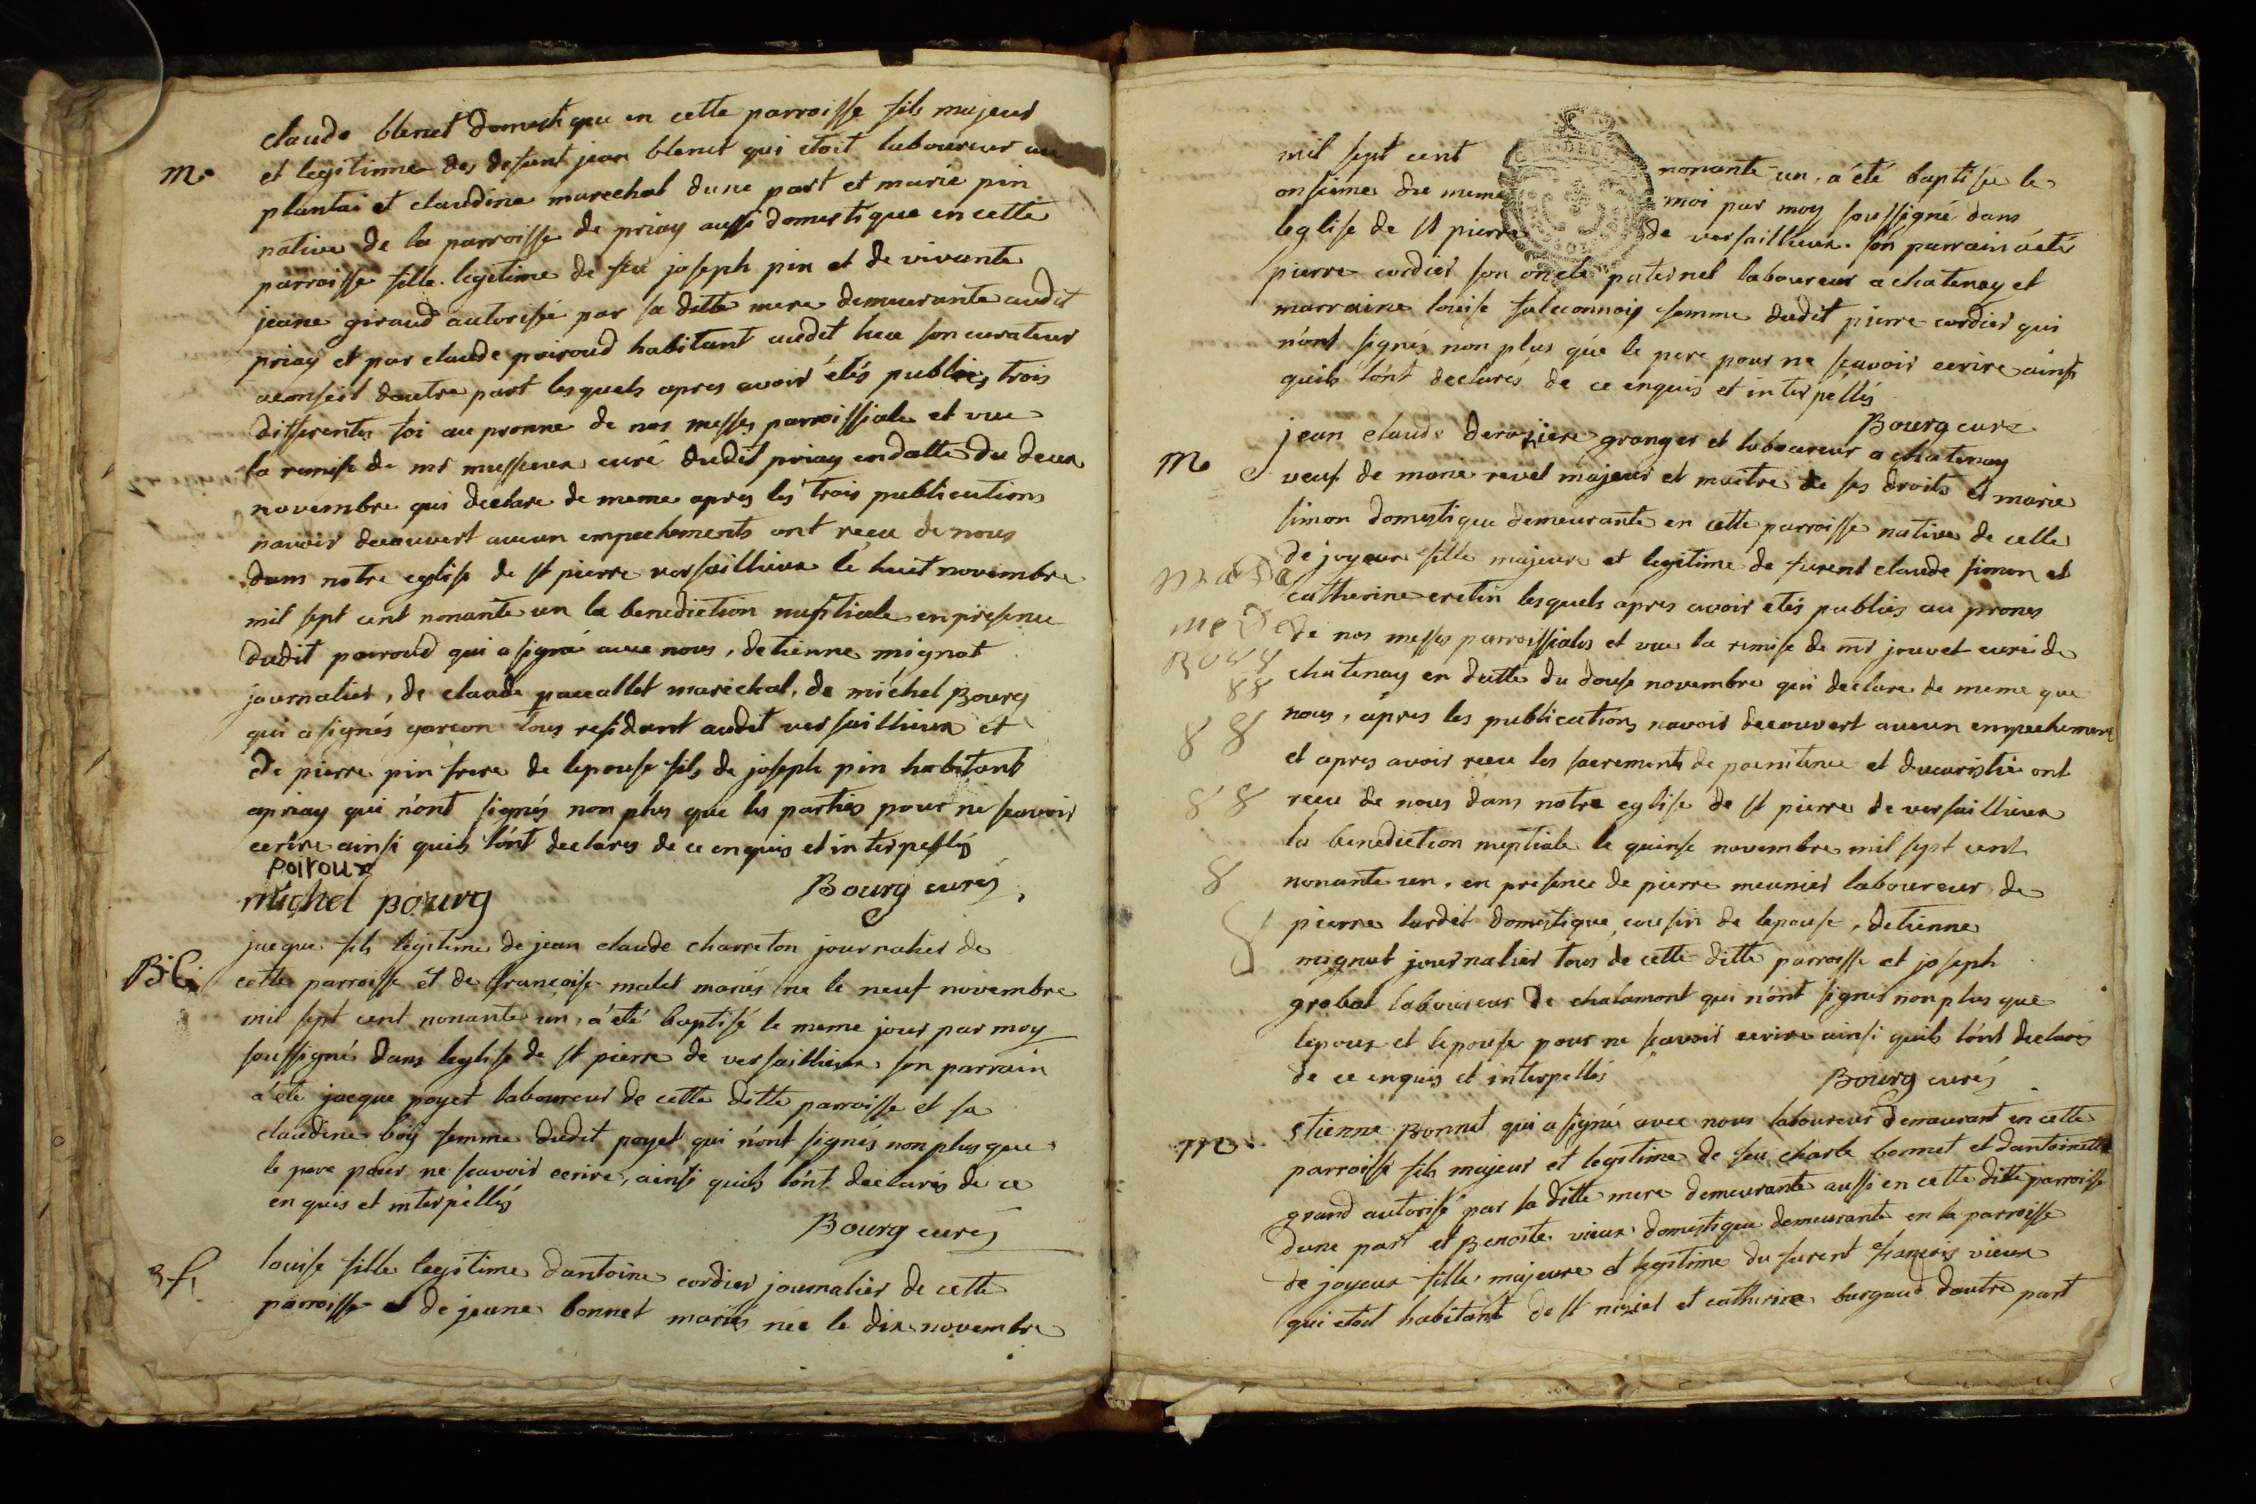 claude blenet domestique en cette parroisse fils majeur
m. et legitinne des defunt jean blenet qui etoit laboureur au
plantai et claudine marechal dune part et marie pin
native de la parroisse de priay aussi domestique en cette
parroisse fille legitime de feu joseph pin et de vivante
jeane giraud autorisé par sa ditte mere demeurante audit
priay et par claude poiroud habitant audit lieu son curateur
aconseil dautre part lesquels apres avoir étés publiés trois
differentes foi au pronne de nos messes parroissiale et vue
la remise de mr musseux curé dudit priay en datte du deux
novembre qui declare de meme apres les trois publications
navoir decouvert aucun empechements ont reçu de nous
dans notre eglise de st pierre versaillieux le huit novembre
mil sept cent nonante un la benediction nuptiale en presence
dudit poiroud qui a signé avec nous, detienne mignat
journalier, de claude pacallet marechal, de michel Bourg
qui a signés garcon tous residant audit versaillieux et
de pierre pin frere de lepouse fils de joseph pin habitant
apriay qui n'ont signés non plus que les parties pour ne scavoir
ecrire ainsi quils lónt declarés de ce enquis et interpellés
poiroux
michel bourg Bourg curés
jacque fils légitime de jean claude charreton journalier de
cette parroisse et de francoise malet mariés ne le neuf novembre
mil sept cent nonante un, a été baptisé le meme jour par moy
soussigné dans leglise de st pierre de versaillieux son parrain
a été jacque poyet laboureur de cette ditte parroisse et sa
claudine boy femme dudit poyet qui n'ont signés non plus que
le pere pour ne scavoir ecrire, ainsi quils lónt declarés de ce
enquis et interpellés
Bourg curés
Bf. louise fille legitime dantoine cordier journalier de cette
parroisse et de jeane bonnet mariés née le dix novembre
mil sept cent nonante un, a été baptisée le
onsieme du meme moi par moy soussigné dans
leglise de st pierre de versaillieux. son parrain a été
pierre cordier son oncle paternel laboureur a chatenay et
marraine louise falconnois femme dudit pierre cordier qui
n'ont signés non plus que le pere pour ne scavoir ecrire ainsi
quils lónt declarés de ce enquis et interpéllés
Bourg curé
jean claude derosiere granger et laboureur a chatenay
m veuf de marie revel majeur et maitre de ses droits et marie
simon domestique demeurante en cette parroisse native de celle
de joyeux fille majeure et legitime de furent claude simon et
catherine cretin lesquels apres avoir etés publiés au prones
de nos messes parroissiales et vue la remise de mr jouvet curé de
chatenay en datte du douse novembre qui declare de meme que
nous, apres les publications navoir decouvert aucun empechement
et apres avoir reçu les sacrements de poenitence et deucaristie ont
reçu de nous dans notre eglise de st pierre de versaillieux
la benediction nuptiale le quinse novembre mil sept cent
nonante un, en presence de pierre meunier laboureur, de
pierre lardet domestique cousin de lepouse, detienne
mignat journalier tous de cette ditte parroisse et joseph
grobat laboureur de chalamont qui n'ont signés non plus que
lepoux et lepouse pour ne scavoir ecrire ainsi quils lónt declarés
de ce enquis et interpellés Bourg curés
m. Etienne Bonnet qui a signé avec nous laboureur demeurant en cette
parroisse fils majeur et legitime de feu charle bonnet et dantoinette
grand autorisé par la ditte mere demeurante aussi en cette ditte parroisse
dune part et Benoite vieux domestique demeurante en la parroisse
de joyeux fille, majeure et legitime du furent francois vieux
qui etoit habitant de st nisier et catherine burgaud dautre part